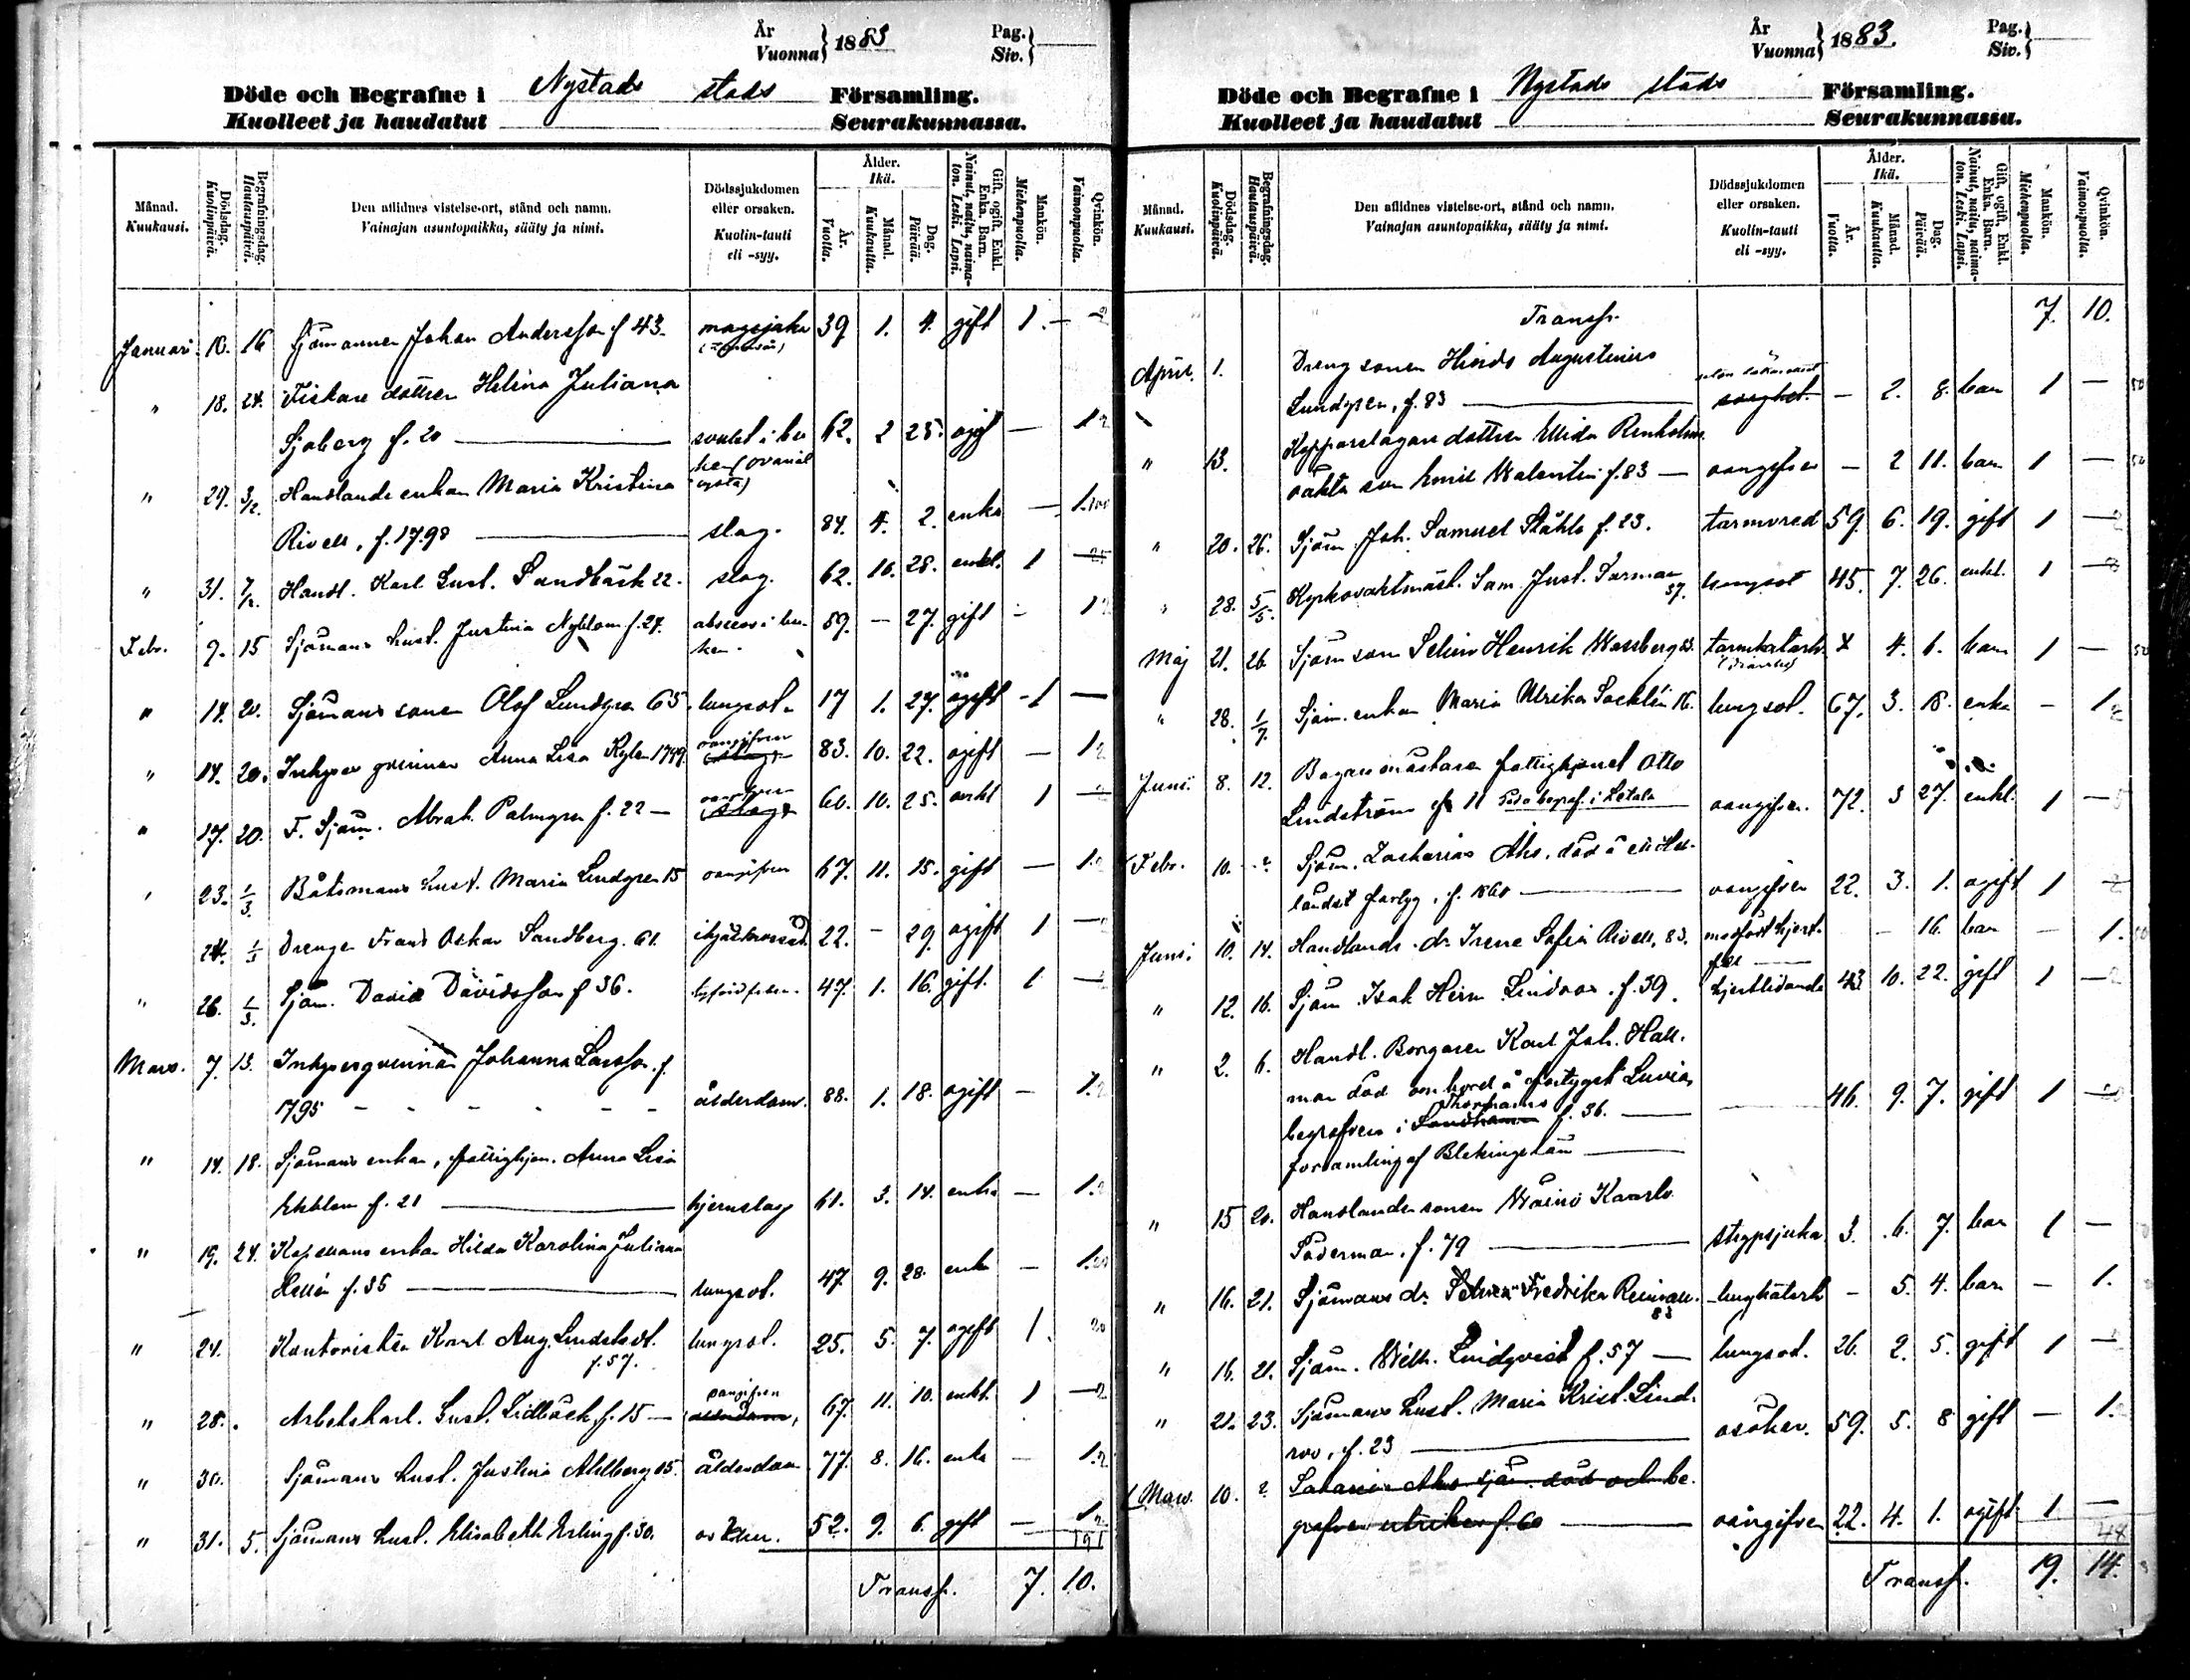 År
Vuonna } 1883
Pag.
Siv. }
Döde och Begrafne i Nystads stads Församling.
Kuolleet ja haudatut Seurakunnassa.
Månad. Kuukausi.
Dödsdag. Kuolinpäivä.
Begrafningsdag. Hautauspäivä.
Den aflidnes vistelse-ort, stånd och namn.
Vainajan asuntopaikka, sääty ja nimi.
Dödssjukdomen eller orsaken.
Kuolin-tauti eli -syy.
Ålder. Ikä.
År. Vuotta.
Månad. Kuukautta.
Dag. Päivää.
Gift, ogift, Enkl. Enka. Barn.
Nainut, naitu, naimaton. Leski. Lapsi.
Mankön. Miehenpuolta.
Qvinkön. Vaimonpuolta.
Januari 10. 16 Sjömannen Johan Andersson f 43. magsjuka 39 1. 4. gift 1. —
" 18. 24. Fiskare dottren Helena Juliana
Sjöberg f. 20 — 62. 2 25. ogif — 1
" 29. 3/2. Handlande enkan Maria Kristina
Rivell, f. 1798 — slag. 84. 4. 2. enka — 1.
" 31. 7/2. Handl. Karl Gust. Sandbäck 22. slag. 62. 10. 28. enkl. 1 —
Febr. 9. 15 Sjömans hust. Justina Nyblom f. 24. abscess i buken. 59. — 27. gift — 1
" 14. 20. Sjömans sonen Olof Lundgren 65. lungsot. 17 1. 27. ogift 1 —
" 14. 20. Inhyses qvinnan Anna Lisa 1799. oangifven 83. 10. 22. ogift — 1
" 17. 20. F. Sjöm. Abrah. Palmgren f. 22 — oangifven slag 60. 10. 25. enkl 1 —
" 23. 1/3. Båtsmans hust. Maria Lindgren 15 oangifven 67. 11. 15. gift — 1.
24. 1/3 Drengen Frans Oskar Sandberg. 61. ihjälkrossad 22. — 29. ogift 1 —
" 26. 1/3. Sjöm. David Davidsson f 36. tyfoidfeber. 47. 1. 16. gift. 1 —
Mars. 7. 13. Inhysesqvinnan Johanna Larsson. f.
1795 - - - - - - ålderdom. 88. 1. 18. ogift — 1.
" 14. 18. Sjömans enkan, fattighjon. Anna Lisa
Ekblom f. 21 — hjernslag 61. 3. 14. enka — 1.
" 19. 24. Kapellans enkan Hilda Karolina Juliana
Hellén f. 35 — lungsot. 47 9. 28. enk — 1.
" 24. Kontoristen Karl Aug. Lindstedt.
f. 57. lungsot. 25. 5. 7. ogift 1.
" 28. Arbetskarl. Gust. Lidbäck f. 15 — oangifven 67. 11. 10. enkl. 1 —
" 30. Sjömans hust. Justina Ahlberg 05. ålderdom 77. 8. 16. enka — 1.
" 31. 5. Sjömans hust. Elisabeth Erling f. 30. 52. 9. 6. gift — 1.
Transp. 7. 10.
År
Vuonna } 1883.
Pag.
Siv. }
Döde och Begrafne i Nystads stads Församling.
Kuolleet ja haudatut Seurakunnassa.
Månad. Kuukausi.
Dödsdag. Kuolinpäivä.
Begrafningsdag. Hautauspäivä.
Den aflidnes vistelse-ort, stånd och namn.
Vainajan asuntopaikka, sääty ja nimi.
Dödssjukdomen eller orsaken.
Kuolin-tauti eli -syy.
Ålder. Ikä.
År. Vuotta.
Månad. Kuukautta.
Dag. Päivää.
Gift, ogift, Enkl. Enka. Barn.
Nainut, naitu, naimaton. Leski. Lapsi.
Mankön. Miehenpuolta.
Qvinkön. Vaimonpuolta.
Transp. 7. 10.
April. 1. Dreng sonen Augustinus
Lundgren, f. 83 — — 2. 8. barn 1 — 50
" 13. Kopparslagare dottren Ellida Renholms
oäkta son Emil Walentin f. 83 — oangifven — 2 11. barn 1 — 50
" 20. 26. Sjöm. Joh. Samuel Ståhle f. 23. tarmvred 59. 6. 19. gift 1 —
" 28. 5/5. Kyrkovaktmäst. Sam. Just. 37. lungsot 45. 7. 26. enkl. 1 —
Maj 21. 26. Sjöm son Selim Henrik Wassberg 83. tarmkatarh. 4. 1. barn 1 — 50
" 28. 1/7. Sjöm. enkan Maria Ulrika Socklin 16. lungsot. 67. 3. 18. enka — 1.
Juni 8. 12. Bagaremästaren fattighjonet Otto
Lindström f. 11 begraf. i Letala oangifven. 72. 3 27. enkl. 1 —
Febr. 10. ? Sjöm. Zacharias Aho. död å
ländskt fartyg, f. 1860 — oangifven 22. 3. 1. ogift 1 —
Juni 10. 14. Handlande dr. Irene Sofia Rivell, 83. medfödt hjert-
fel — — 16. barn — 1.
" 12. 16. Sjöm Isak Herm Lindroos. f. 39. hjertlidande 43 10. 22. gift 1 —
" 2. 6. Handl. Borgaren Karl Joh. Hall-
man död om bord å fartyget Luvia,
begrafven i Sandhamn Thorhamns f. 36. — 46. 9. 7. gift 1 —
församling af Blekinge län —
" 15 20. Handlande sonen Wäinö Kaarlo
Söderman, f. 79 — strypsjuka 3. 6. 7. barn 1 —
" 16. 21. Sjömans dr. Fredrika 83 lungkatarh — 5. 4. barn — 1.
" 16. 21. Sjöm. Wilh. Lindqvist f. 57 — lungsot. 26. 2. 5. gift 1 —
" 21. 23. Sjömans hust. Maria Krist. Lind-
roos, f. 23 — 59. 5. 8 gift — 1.
Mars. 10. ? Sakarias Aho sjöm. död och be-
grafven utrikes f. 60 — oangifven 22. 4. 1. ogift 1. —
Transp. 19. 14.